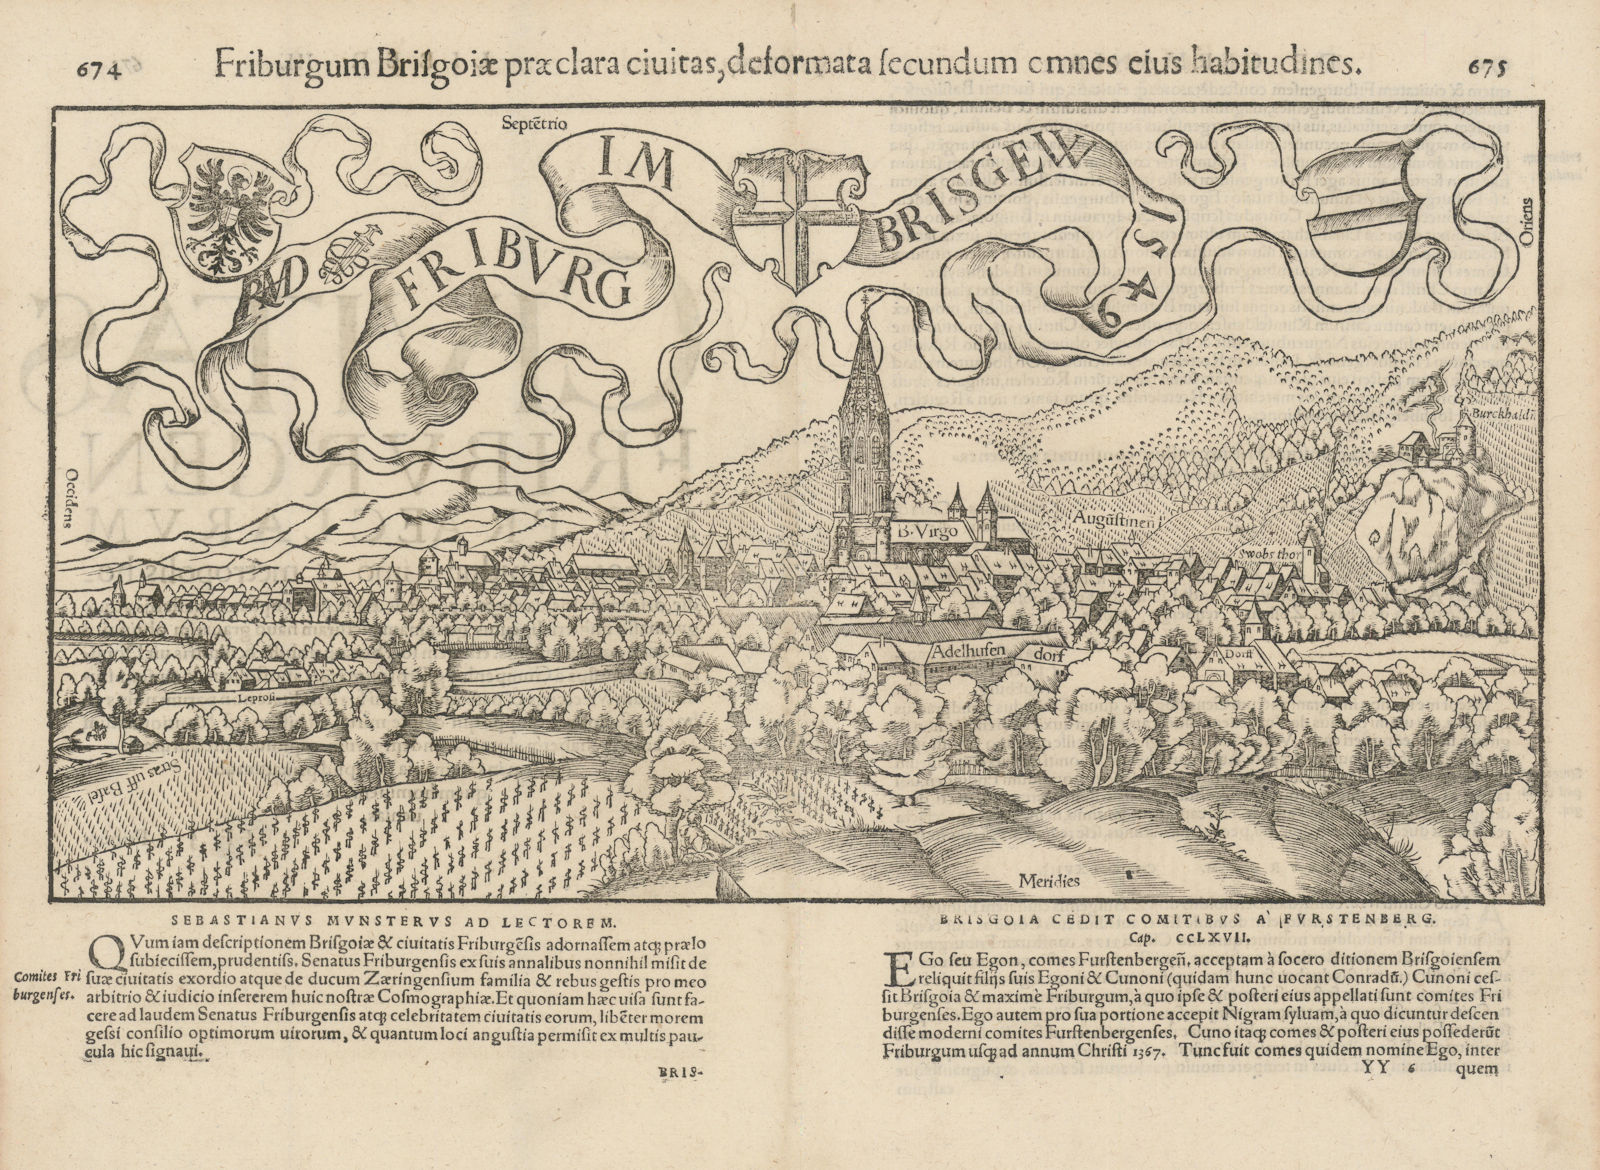 674
Friburgum Briſgoiæ præclara ciuitas, deformata ſecundum omnes eius habitudines.
675
Septẽtrio
IM
BRISGEW
1549
FRIBVRG
RMD
Oriens
Occidens
Burckhaldñ
B. Virgo
Auguſtinen
Swobs thor
Adelhuſen dorf
Dorff
Leproſi
Stras uff Baſel
Meridies
SEBASTIANVS MVNSTERVS AD LECTOREM.
QVum iam deſcriptionem Briſgoiæ & ciuitatis Friburgẽſis adornaſſem atq; prælo
ſubieciſſem, prudentiſs. Senatus Friburgenſis ex ſuis annalibus nonnihil miſit de
Comites Fri
burgenſes.
ſuæ ciuitatis exordio atque de ducum Zæringenſium familia & rebus geſtis pro meo
arbitrio & iudicio inſererem huic noſtræ Coſmographiæ. Et quoniam hæc uiſa ſunt fa-
cere ad laudem Senatus Friburgenſis atq; celebritatem ciuitatis eorum, libẽter morem
geſsi conſilio optimorum uirorum, & quantum loci anguſtia permiſit ex multis pau-
cula hic ſignaui.
BRIS-
BRISGOIA CEDIT COMITIBVS A' FVRSTENBERG.
Cap. CCLXVII.
EGo ſeu Egon, comes Furſtenbergeñ, acceptam à ſocero ditionem Briſgoienſem
reliquit filijs ſuis Egoni & Cunoni (quidam hunc uocant Conradũ.) Cunoni ceſ-
ſit Briſgoia & maximè Friburgum, à quo ipſe & poſteri eius appellati ſunt comites Fri
burgenſes. Ego autem pro ſua portione accepit Nigram ſyluam, à quo dicuntur deſcen
diſſe moderni comites Furſtenbergenſes. Cuno itaq; comes & poſteri eius poſſederũt
Friburgum uſq; ad annum Chriſti 1367. Tunc fuit comes quidem nomine Ego, inter
YY 6 quem